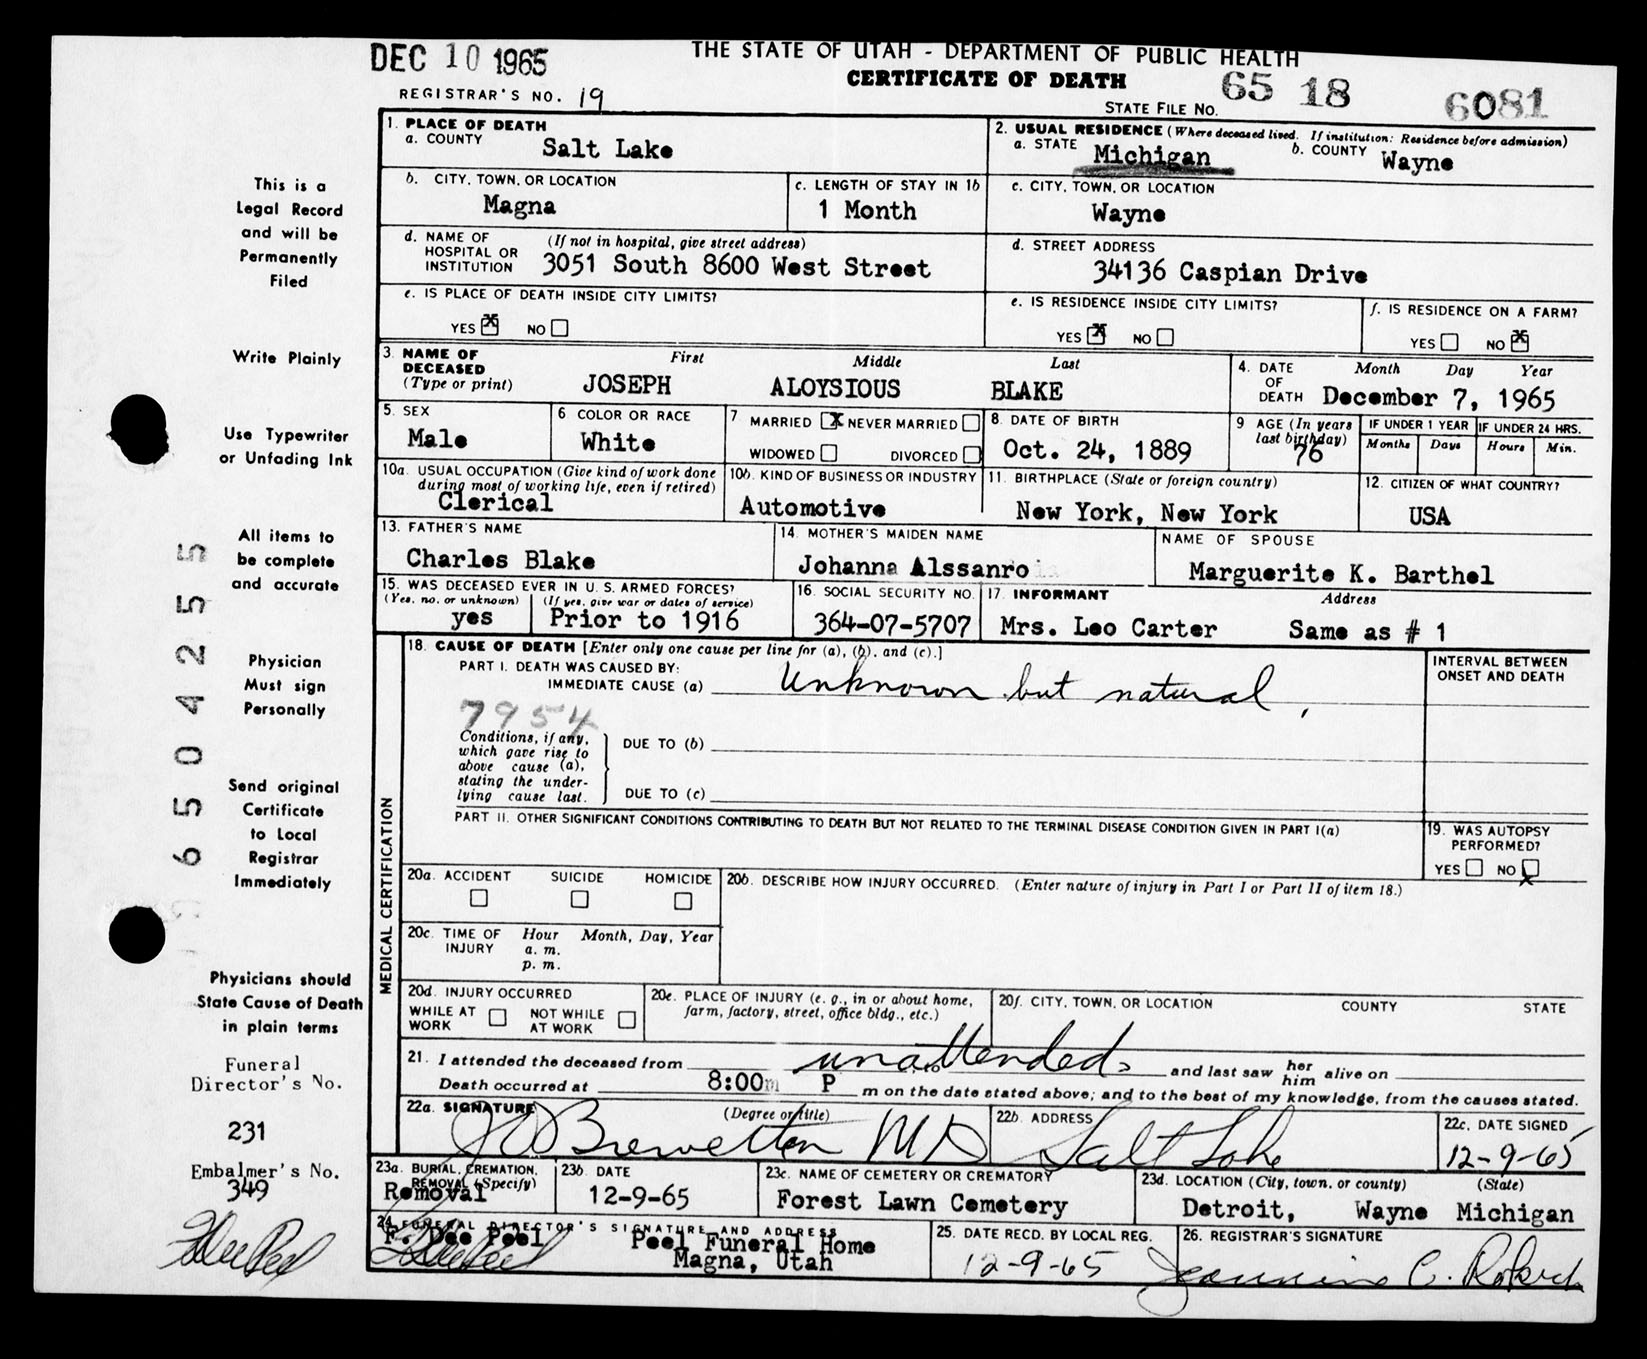 DEC 10 1965
THE STATE OF UTAH - DEPARTMENT OF PUBLIC HEALTH
CERTIFICATE OF DEATH
65 18 6081
REGISTRAR'S NO. 19
STATE FILE NO.
1. PLACE OF DEATH
a. COUNTY Salt Lake
2. USUAL RESIDENCE (Where deceased lived. If institution: Residence before admission)
a. STATE Michigan b. COUNTY Wayne
b. CITY, TOWN, OR LOCATION
Magna
c. LENGTH OF STAY IN 1b
1 Month
c. CITY, TOWN, OR LOCATION
Wayne
d. NAME OF HOSPITAL OR INSTITUTION (If not in hospital, give street address)
3051 South 8600 West Street
d. STREET ADDRESS
34136 Caspian Drive
e. IS PLACE OF DEATH INSIDE CITY LIMITS?
YES X NO
e. IS RESIDENCE INSIDE CITY LIMITS?
YES X NO
f. IS RESIDENCE ON A FARM?
YES NO X
3. NAME OF DECEASED (Type or print)
First Middle Last
JOSEPH ALOYSIOUS BLAKE
4. DATE OF DEATH Month Day Year
December 7, 1965
5. SEX
Male
6 COLOR OR RACE
White
7 MARRIED X NEVER MARRIED
WIDOWED DIVORCED
8. DATE OF BIRTH
Oct. 24, 1889
9 AGE (In years last birthday)
76
IF UNDER 1 YEAR IF UNDER 24 HRS.
Months Days Hours Min.
10a. USUAL OCCUPATION (Give kind of work done during most of working life, even if retired)
Clerical
10b. KIND OF BUSINESS OR INDUSTRY
Automotive
11. BIRTHPLACE (State or foreign country)
New York, New York
12. CITIZEN OF WHAT COUNTRY?
USA
13. FATHER'S NAME
Charles Blake
14. MOTHER'S MAIDEN NAME
Johanna Alssanro
NAME OF SPOUSE
Marguerite K. Barthel
15. WAS DECEASED EVER IN U. S. ARMED FORCES?
(Yes, no. or unknown) (If yes, give war or dates of service)
yes Prior to 1916
16. SOCIAL SECURITY NO.
364-07-5707
17. INFORMANT Address
Mrs. Leo Carter Same as # 1
MEDICAL CERTIFICATION
18. CAUSE OF DEATH [Enter only one cause per line for (a), (b), and (c).]
PART I. DEATH WAS CAUSED BY:
IMMEDIATE CAUSE (a) Unknown but natural,
INTERVAL BETWEEN
ONSET AND DEATH
7954
Conditions, if any,
which gave rise to
above cause (a),
stating the under-
lying cause last.
DUE TO (b)
DUE TO (c)
PART II. OTHER SIGNIFICANT CONDITIONS CONTRIBUTING TO DEATH BUT NOT RELATED TO THE TERMINAL DISEASE CONDITION GIVEN IN PART I(a)
19. WAS AUTOPSY
PERFORMED?
YES NO X
20a. ACCIDENT SUICIDE HOMICIDE
20b. DESCRIBE HOW INJURY OCCURRED. (Enter nature of injury in Part I or Part II of item 18.)
20c. TIME OF INJURY Hour Month, Day, Year
a. m.
p. m.
20d. INJURY OCCURRED
WHILE AT WORK NOT WHILE AT WORK
20e. PLACE OF INJURY (e. g., in or about home,
farm, factory, street, office bldg., etc.)
20f. CITY, TOWN, OR LOCATION COUNTY STATE
21. I attended the deceased from unattended and last saw her him alive on
Death occurred at 8:00m P m on the date stated above; and to the best of my knowledge, from the causes stated.
22a. SIGNATURE (Degree or title)
J O Brewerton MD
22b. ADDRESS
Salt Lake
22c. DATE SIGNED
12-9-65
23a. BURIAL, CREMATION,
REMOVAL (Specify)
Removal
23b. DATE
12-9-65
23c. NAME OF CEMETERY OR CREMATORY
Forest Lawn Cemetery
23d. LOCATION (City, town, or county) (State)
Detroit, Wayne Michigan
24. FUNERAL DIRECTOR'S SIGNATURE AND ADDRESS
F. Dee Peel Peel Funeral Home
Magna, Utah
F Dee Peel
25. DATE RECD. BY LOCAL REG.
12-9-65
26. REGISTRAR'S SIGNATURE
C.
This is a
Legal Record
and will be
Permanently
Filed
Write Plainly
Use Typewriter
or Unfading Ink
All items to
be complete
and accurate
Physician
Must sign
Personally
Send original
Certificate
to Local
Registrar
Immediately
Physicians should
State Cause of Death
in plain terms
Funeral
Director's No.
231
Embalmer's No.
349
F Dee Peel
6504255